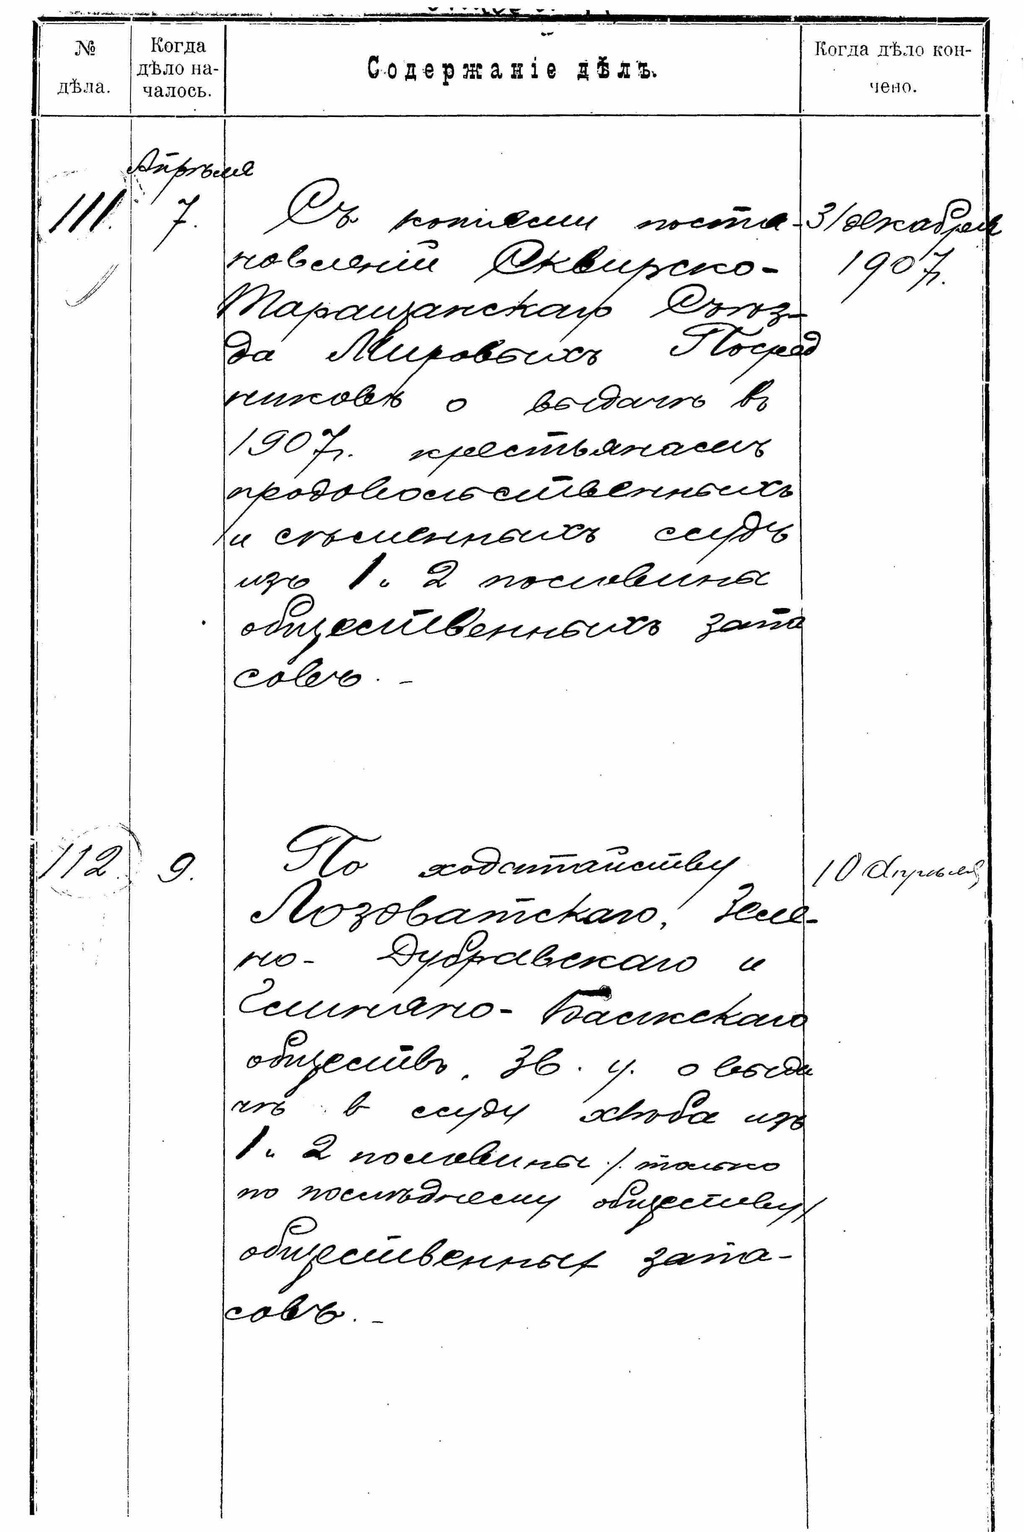 № дѣла.
Когда дѣло на-
чалось.
Содержаніе дѣлъ.
Когда дѣло кон-
чено.
Апрѣля
111. 7. Съ копіями поста- 31 декабря
новленій Сквирско- 1907г.
Таращанскаго Съѣз-
да Мировыхъ Посред
никовъ о выдачѣ въ
1907г. крестьянамъ
продовольственныхъ
и сѣменныхъ ссудъ
изъ 1 и 2 половины
общественныхъ запа
совъ. –
112. 9. По ходатайству 10 Апрѣля
Лозоватскаго, Зеле-
но- Дубравскаго и
Глиняно- Балкскаго
обществъ, Зв. у. о выда
чѣ въ ссуду хлѣба изъ
1 и 2 половины / только
по послѣднему обществу /
общественных запа-
совъ. –